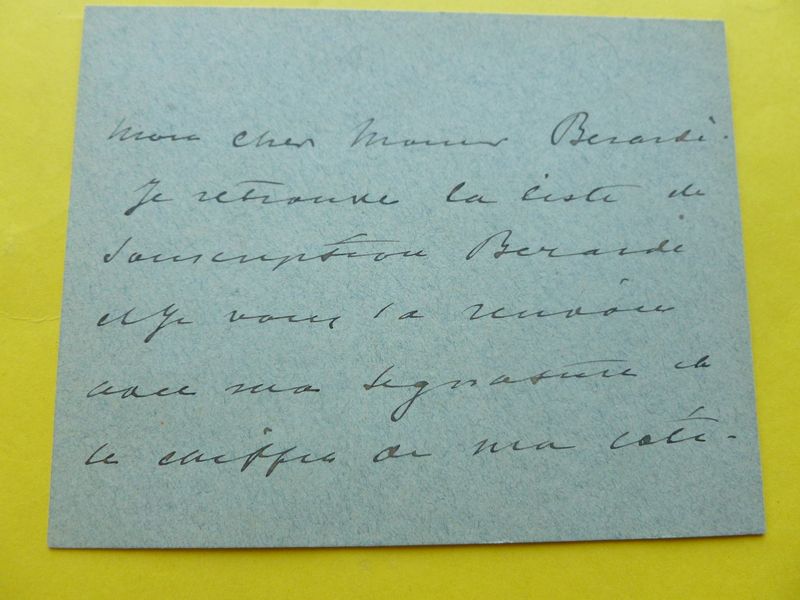 Mon cher Monsieur Berardi.
Je retrouve la liste de
Souscription Berardi
et je vous la renvoie
avec ma signature et
le chiffre de ma coti-